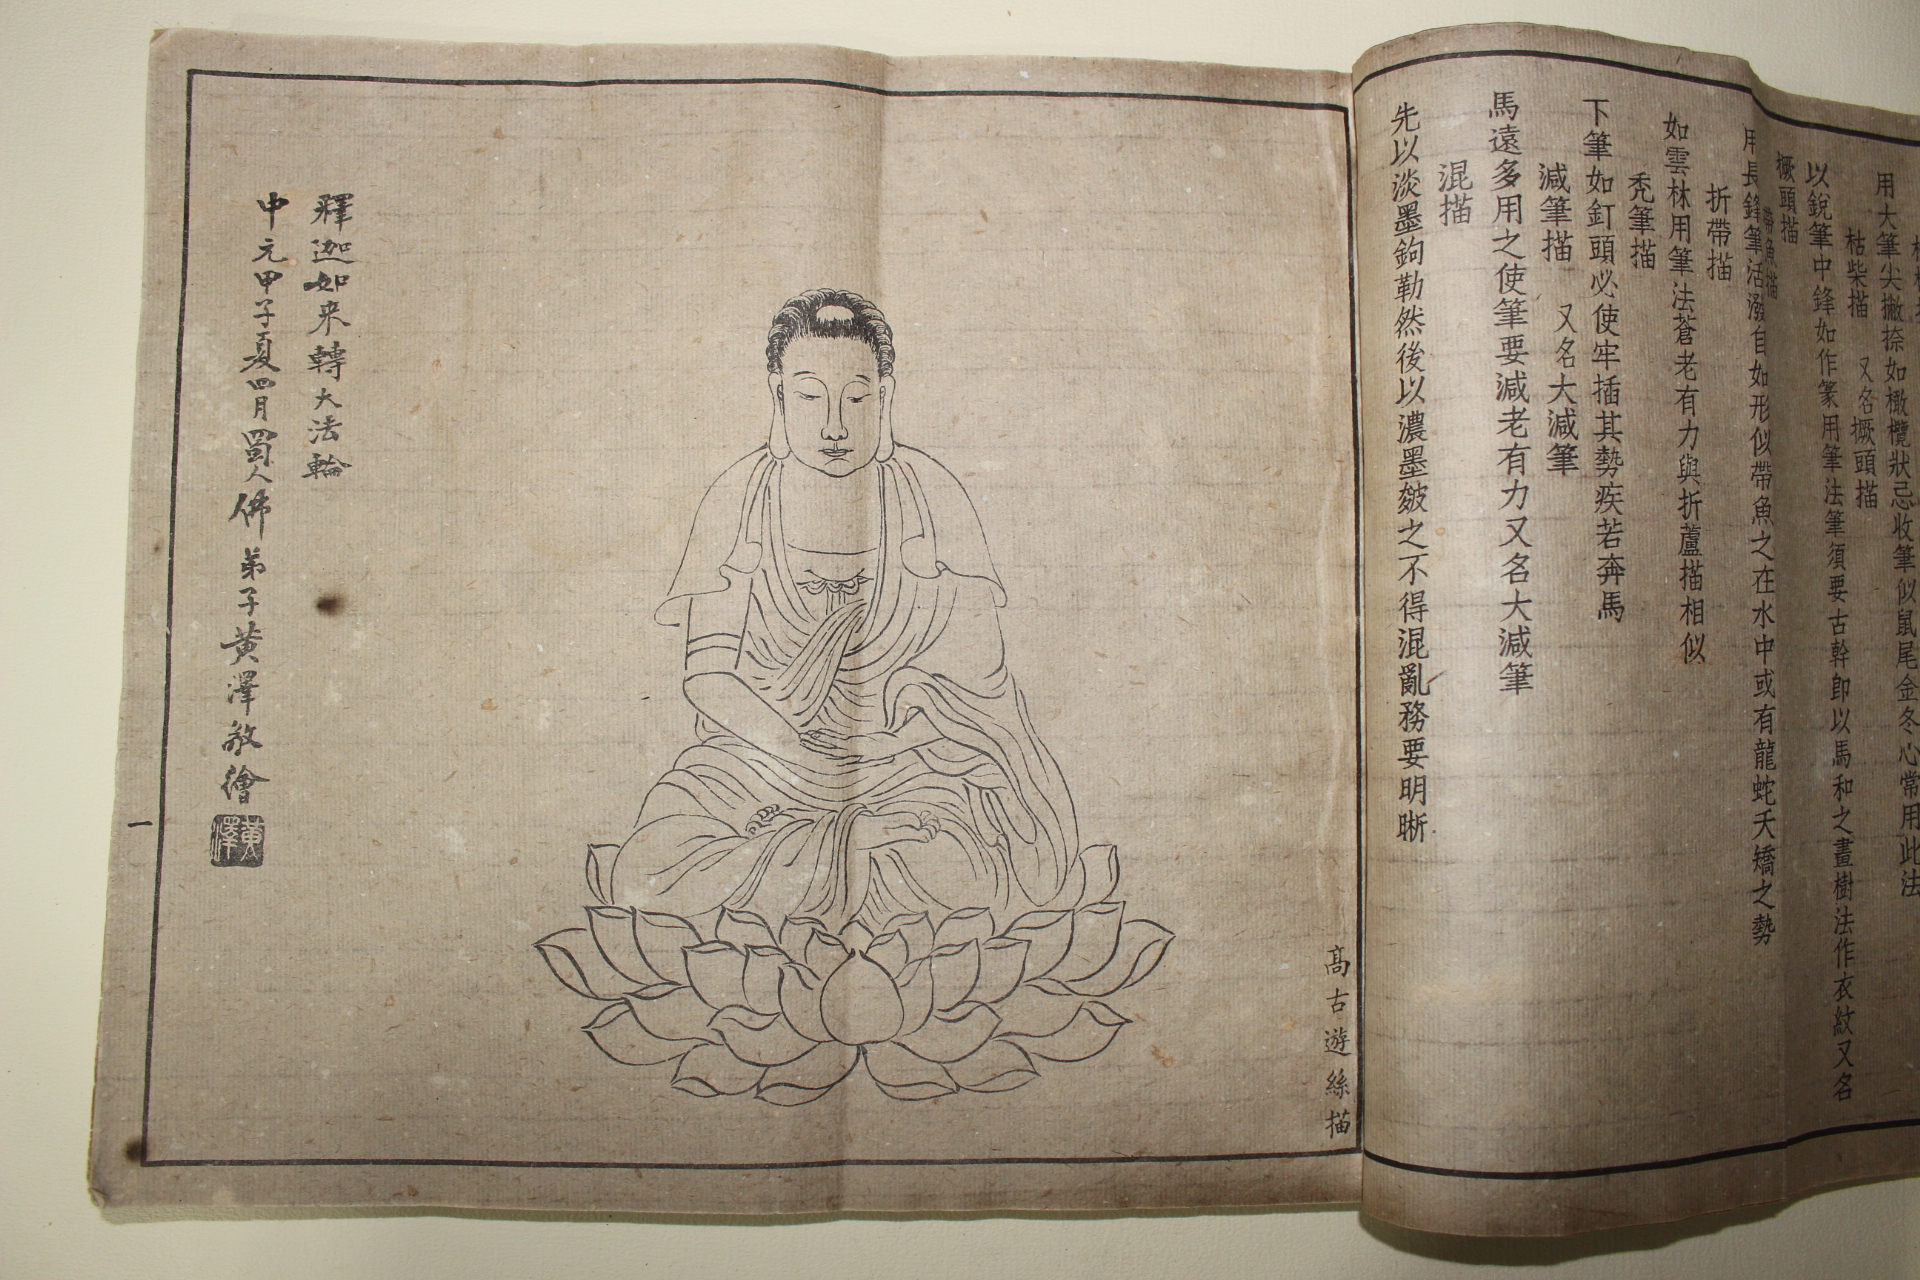 用大筆尖撇捺如橄欖狀忌收筆似鼠尾金冬心常用此法
枯柴描 又名撅頭描
以銳筆中鋒如作篆用筆法筆須要古幹即以馬和之畫樹法作衣紋又名
撅頭描
帶魚描
用長鋒筆活潑自如形似帶魚之在水中或有龍蛇夭矯之勢
折帶描
如雲林用筆法蒼老有力與折蘆描相似
禿筆描
下筆如釘頭必使牢插其勢疾若奔馬
減筆描 又名大減筆
馬遠多用之使筆要減老有力又名大減筆
混描
先以淡墨鉤勒然後以濃墨皴之不得混亂務要明晰
高古遊絲描
釋迦如来轉大法輪
中元甲子夏四月蜀人佛弟子黃澤敬繪
黃澤
一